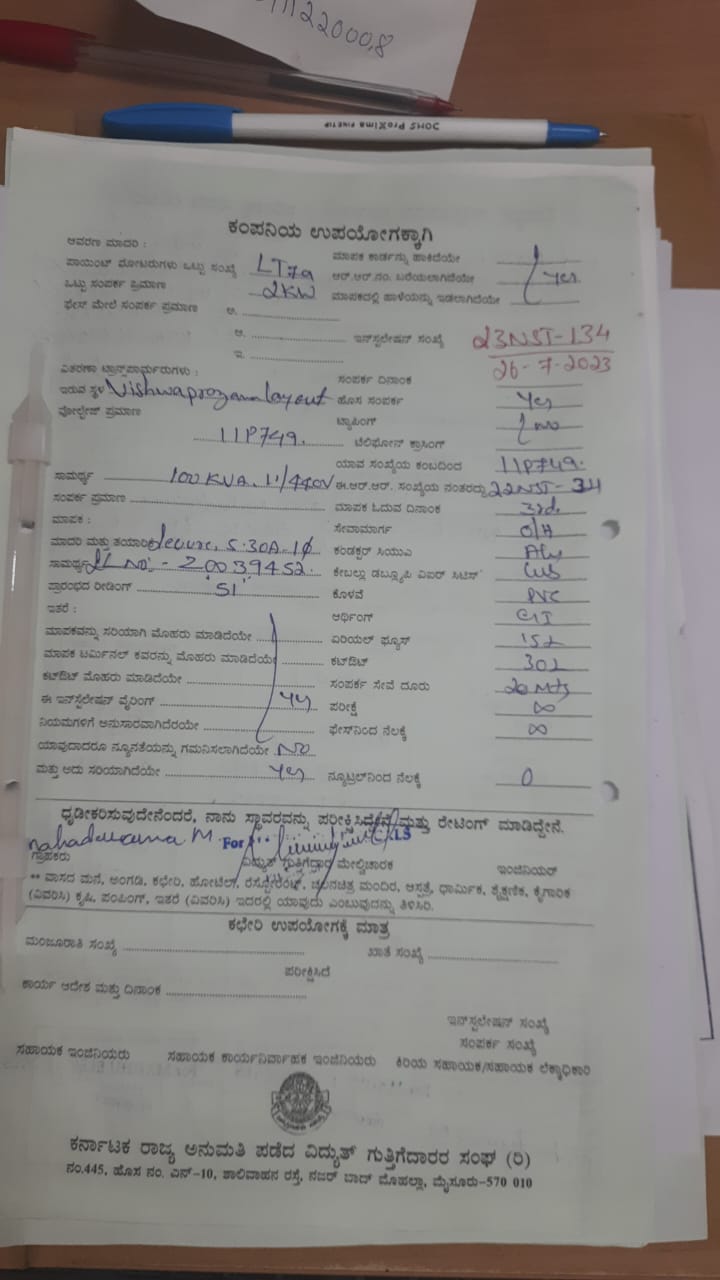 22000,8
DOMS ProXima FINETIP
ಕಂಪನಿಯ ಉಪಯೋಗಕ್ಕಾಗಿ
ಆವರಣ ಮಾದರಿ : ಮಾಪಕ ಕಾರ್ಡನ್ನು ಹಾಕಿದೆಯೇ
ಪಾಯಿಂಟ್ ಮೋಟರುಗಳು ಒಟ್ಟು ಸಂಖ್ಯೆ LT7a ಆರ್.ಆರ್.ನಂ. ಬರೆಯಲಾಗಿದೆಯೇ Yes
ಒಟ್ಟು ಸಂಪರ್ಕ ಪ್ರಮಾಣ 2KW ಮಾಪಕದಲ್ಲಿ ಹಾಳೆಯನ್ನು ಇಡಲಾಗಿದೆಯೇ
ಫೇಸ್ ಮೇಲೆ ಸಂಪರ್ಕ ಪ್ರಮಾಣ ಅ. ....................
ಆ. .................... ಇನ್‌ಸ್ಟಲೇಷನ್ ಸಂಖ್ಯೆ 23NST-134
ಇ. .................... 26-7-2023
ವಿತರಣಾ ಟ್ರಾನ್ಸ್‌ಪಾರ್ಮರುಗಳು : ಸಂಪರ್ಕ ದಿನಾಂಕ
ಇರುವ ಸ್ಥಳ layout ಹೊಸ ಸಂಪರ್ಕ Yes
ವೋಲ್ಟೇಜ್ ಪ್ರಮಾಣ ಟ್ಯಾಪಿಂಗ್ no
11P749. ಟೆಲಿಫೋನ್ ಕ್ರಾಸಿಂಗ್
ಯಾವ ಸಂಖ್ಯೆಯ ಕಂಬದಿಂದ 11P749.
ಸಾಮರ್ಥ್ಯ 100 KVA. 11/440V ಈ.ಆರ್.ಆರ್. ಸಂಖ್ಯೆಯ ನಂತರದ್ದು 22NST-34
ಸಂಪರ್ಕ ಪ್ರಮಾಣ .................... ಮಾಪಕ ಓದುವ ದಿನಾಂಕ 3rd
ಮಾಪಕ : ಸೇವಾಮಾರ್ಗ O/H
ಮಾದರಿ ಮತ್ತು ತಯಾರಿಕೆ Secure, 5-30A-1ϕ ಕಂಡಕ್ಟರ್ ಸಿಯುಎ Aly
ಸಾಮರ್ಥ್ಯ SL NO:- 20039452. ಕೇಬಲ್ಲು ಡಬ್ಲ್ಯೂಪಿ ಎಐರ್ ಸಿಟಿಸ್
ಪ್ರಾರಂಭದ ರೀಡಿಂಗ್ '51' ಕೊಳವೆ PVC
ಇತರೆ : ಆರ್ಥಿಂಗ್ GI
ಮಾಪಕವನ್ನು ಸರಿಯಾಗಿ ಮೊಹರು ಮಾಡಿದೆಯೇ ........ ಏರಿಯಲ್ ಫ್ಯೂಸ್
ಮಾಪಕ ಟರ್ಮಿನಲ್ ಕವರನ್ನು ಮೊಹರು ಮಾಡಿದೆಯೇ ........ ಕಟ್‌ಔಟ್
ಕಟ್‌ಔಟ್ ಮೊಹರು ಮಾಡಿದೆಯೇ .................... ಸಂಪರ್ಕ ಸೇವೆ ದೂರು 20 Mts
ಈ ಇನ್‌ಸ್ಟಲೇಷನ್ ವೈರಿಂಗ್ .................... Yes ಪರೀಕ್ಷೆ ∞
ನಿಯಮಗಳಿಗೆ ಅನುಸಾರವಾಗಿದೆರೆಯೇ .................... ಫೇಸ್‌ನಿಂದ ನೆಲಕ್ಕೆ ∞
ಯಾವುದಾದರೂ ನ್ಯೂನತೆಯನ್ನು ಗಮನಿಸಲಾಗಿದೆಯೇ No
ಮತ್ತು ಅದು ಸರಿಯಾಗಿದೆಯೇ .................... Yes ನ್ಯೂಟ್ರಲ್‌ನಿಂದ ನೆಲಕ್ಕೆ 0
ಧೃಡೀಕರಿಸುವುದೇನೆಂದರೆ, ನಾನು ಸ್ಥಾವರವನ್ನು ಪರೀಕ್ಷಿಸಿದ್ದೇನೆ ಮತ್ತು ರೇಟಿಂಗ್ ಮಾಡಿದ್ದೇನೆ.
M. For
ಗ್ರಾಹಕರು ವಿದ್ಯುತ್ ಗುತ್ತಿಗೆದ್ದಾರ ಮೇಲ್ವಿಚಾರಕ ಇಂಜಿನಿಯರ್
** ವಾಸದ ಮನೆ, ಅಂಗಡಿ, ಕಛೇರಿ, ಹೋಟೆಲ್, ರೆಸ್ಟೋರೆಂಟ್, ಚಲನಚಿತ್ರ ಮಂದಿರ, ಆಸ್ಪತ್ರೆ, ಧಾರ್ಮಿಕ, ಶೈಕ್ಷಣಿಕ, ಕೈಗಾರಿಕ
(ವಿವರಿಸಿ) ಕೃಷಿ, ಪಂಪಿಂಗ್, ಇತರೆ (ವಿವರಿಸಿ) ಇದರಲ್ಲಿ ಯಾವುದು ಎಂಬುವುದನ್ನು ತಿಳಿಸಿರಿ.
ಕಛೇರಿ ಉಪಯೋಗಕ್ಕೆ ಮಾತ್ರ
ಮಂಜೂರಾತಿ ಸಂಖ್ಯೆ .................... ಖಾತೆ ಸಂಖ್ಯೆ ....................
ಪರೀಕ್ಷಿಸಿದೆ
ಕಾರ್ಯ ಆದೇಶ ಮತ್ತು ದಿನಾಂಕ ....................
ಇನ್‌ಸ್ಟಲೇಷನ್ ಸಂಖ್ಯೆ
ಸಂಪರ್ಕ ಸಂಖ್ಯೆ
ಸಹಾಯಕ ಇಂಜಿನಿಯರು ಸಹಾಯಕ ಕಾರ್ಯನಿರ್ವಾಹಕ ಇಂಜಿನಿಯರು ಕಿರಿಯ ಸಹಾಯಕ/ಸಹಾಯಕ ಲೆಕ್ಕಾಧಿಕಾರಿ
ಕರ್ನಾಟಕ ರಾಜ್ಯ ಅನುಮತಿ ಪಡೆದ ವಿದ್ಯುತ್ ಗುತ್ತಿಗೆದಾರರ ಸಂಘ (ರಿ)
ನಂ.445, ಹೊಸ ನಂ. ಎನ್-10, ಶಾಲಿವಾಹನ ರಸ್ತೆ, ನಜರ್ ಬಾದ್ ಮೊಹಲ್ಲಾ, ಮೈಸೂರು-570 010